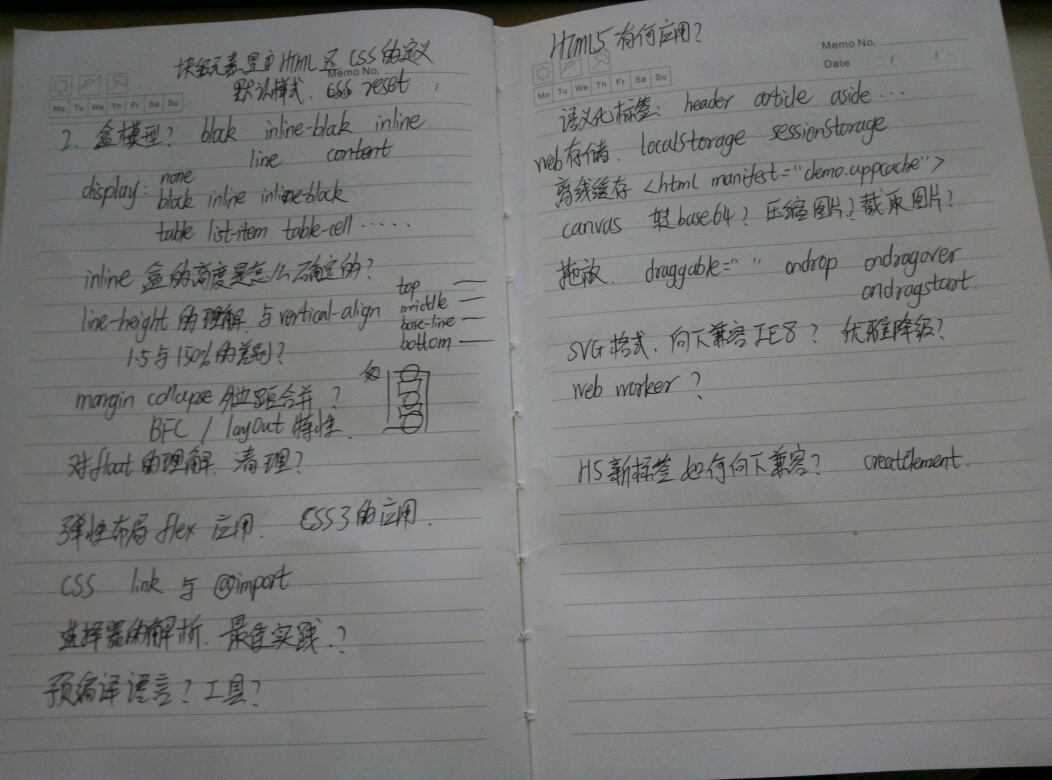 块级元素是由HTML还CSS的定义
Memo No.
默认样式. CSS reset
Mo Tu We Th Fr Sa Su
2. 盒模型? block inline-block inline
line content
none
display: block inline inline-block
table list-item table-cell ·····
inline 盒的高度是怎么确定的?
line-height 的理解. 与 vertical-align
top
middle
base-line
bottom
1.5与150%的差别?
margin collapse 外边距合并?
BFC / layout 特性.
对float的理解. 清理?
弹性布局flex 应用. CSS3的应用.
CSS link 与 @import
选择器的解析. 最佳实践.?
预编译语言? 工具?
Html5 有何应用?
Memo No.
Date / /
Mo Tu We Th Fr Sa Su
语义化标签: header article aside ...
web存储. localStorage sessionStorage
离线缓存 <html manifest="demo.appcache">
canvas 转base64? 压缩图片? 截取图片?
拖放. draggable=" " ondrop ondragover
ondragstart.
SVG格式. 向下兼容IE8? 优雅降级?
web worker?
H5新标签如何向下兼容? createElement.